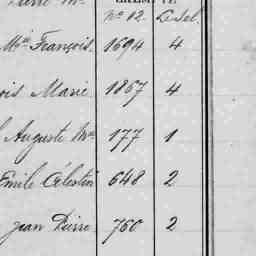 Pierre Me.
No. 12. Le Sel.
Me. François. 1694 4
ois Marie 1867 4
Auguste Me. 177 1
Emile Célestin 648 2
Jean Pierre 760 2